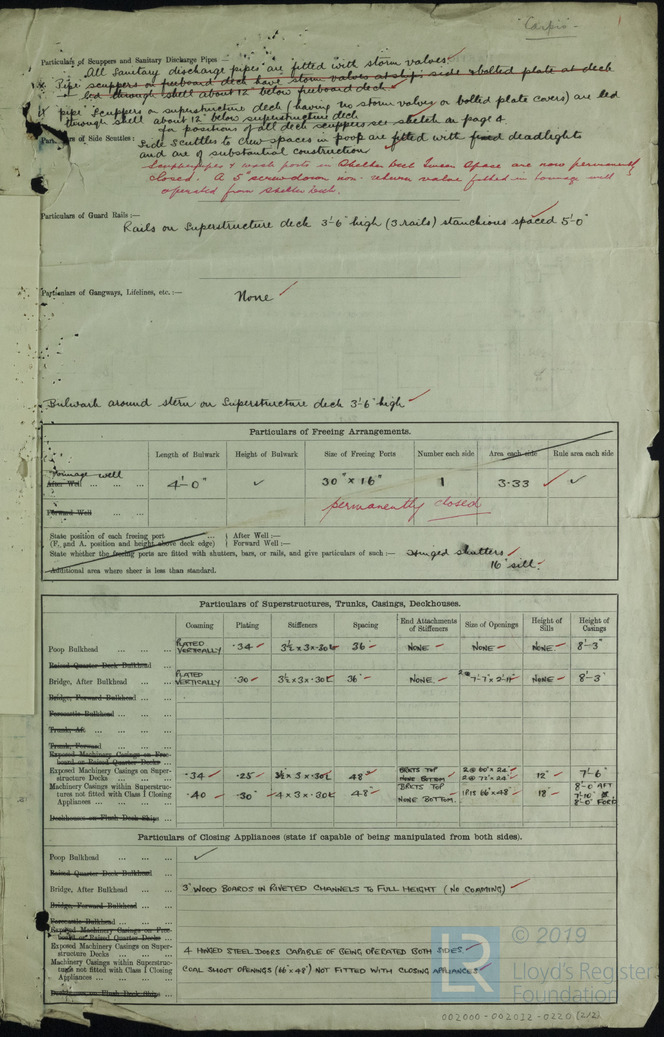 "Carpio"
Particulars of Scuppers and Sanitary Discharge Pipes:—
All Sanitary discharge pipes are fitted with storm valves.
Pipe scuppers on freeboard deck have storm valves at ship side & bolted plate at deck
led through shell about 12" below freeboard deck.
pipe Scuppers on superstructure deck (having no storm valves or bolted plate covers) are led
through shell about 12" below superstructure deck
for positions of all deck scuppers see sketch on page 4.
Particulars of Side Scuttles: Side Scuttles to crew spaces in poop are fitted with fixed deadlights
and are of substantial construction
Scupper pipes & wash ports in Shelter Deck Tween Space are now permanently
closed. A 5" screwdown non-return valve fitted in tonnage well
operated from Shelter Deck.
Particulars of Guard Rails:—
Rails on Superstructure deck 3'-6" high (3 rails) stanchions spaced 5'-0"
Particulars of Gangways, Lifelines, etc.:— None
Bulwark around stern on Superstructure deck 3'-6" high
Particulars of Freeing Arrangements.
Length of Bulwark Height of Bulwark Size of Freeing Ports Number each side Area each side Rule area each side
Tonnage well
After Well ... ... ... 4'-0" 30" x 16" 1 3.33
Forward Well permanently closed
State position of each freeing port ... ... After Well:—
(F. and A. position and height above deck edge) Forward Well:—
State whether the freeing ports are fitted with shutters, bars, or rails, and give particulars of such:— Hinged shutters
16" sill.
Additional area where sheer is less than standard.
Particulars of Superstructures, Trunks, Casings, Deckhouses.
Coaming Plating Stiffeners Spacing End Attachments of Stiffeners Size of Openings Height of Sills Height of Casings
Poop Bulkhead ... ... ... PLATED VERTICALLY .34 3½ x 3 x .30 36" NONE NONE NONE 8'-3"
Raised Quarter Deck Bulkhead
Bridge, After Bulkhead ... ... PLATED VERTICALLY .30 3½ x 3 x .30 36" NONE. 2 @ 7'-7" x 2'-11" NONE 8'-3"
Bridge, Forward Bulkhead ...
Forecastle Bulkhead ... ...
Trunk, Aft ... ... ...
Trunk, Forward ... ...
Exposed Machinery Casings on Freeboard or Raised Quarter Decks ...
Exposed Machinery Casings on Superstructure Decks ... ... ... .34 .25 3½ x 3 x .30 48" BRKTS TOP NONE BOTTOM 2 @ 60" x 24" 2 @ 72" x 24" 12" 7'-6"
Machinery Casings within Superstructures not fitted with Class I Closing Appliances ... ... ... .40 .30 4 x 3 x .30 48" BRKTS TOP NONE BOTTOM. 1 P & S 66" x 48" 18" 8'-0" AFT 7'-10" 8'-0" FORD
Deckhouses on Flush Deck Ships ...
Particulars of Closing Appliances (state if capable of being manipulated from both sides).
Poop Bulkhead ... ... ...
Raised Quarter Deck Bulkhead
Bridge, After Bulkhead ... ... 3" WOOD BOARDS IN RIVETED CHANNELS TO FULL HEIGHT (NO COAMING)
Bridge, Forward Bulkhead ...
Forecastle Bulkhead ... ...
Exposed Machinery Casings on Freeboard or Raised Quarter Decks ...
Exposed Machinery Casings on Superstructure Decks ... ... ... 4 HINGED STEEL DOORS CAPABLE OF BEING OPERATED BOTH SIDES.
Machinery Casings within Superstructures not fitted with Class I Closing Appliances ... ... ... COAL SHOOT OPENINGS (66" x 48") NOT FITTED WITH CLOSING APPLIANCES
Deckhouses on Flush Deck Ships ...
© 2019
LR
Lloyd's Register
Foundation
002000-002012-0220 (2/2)